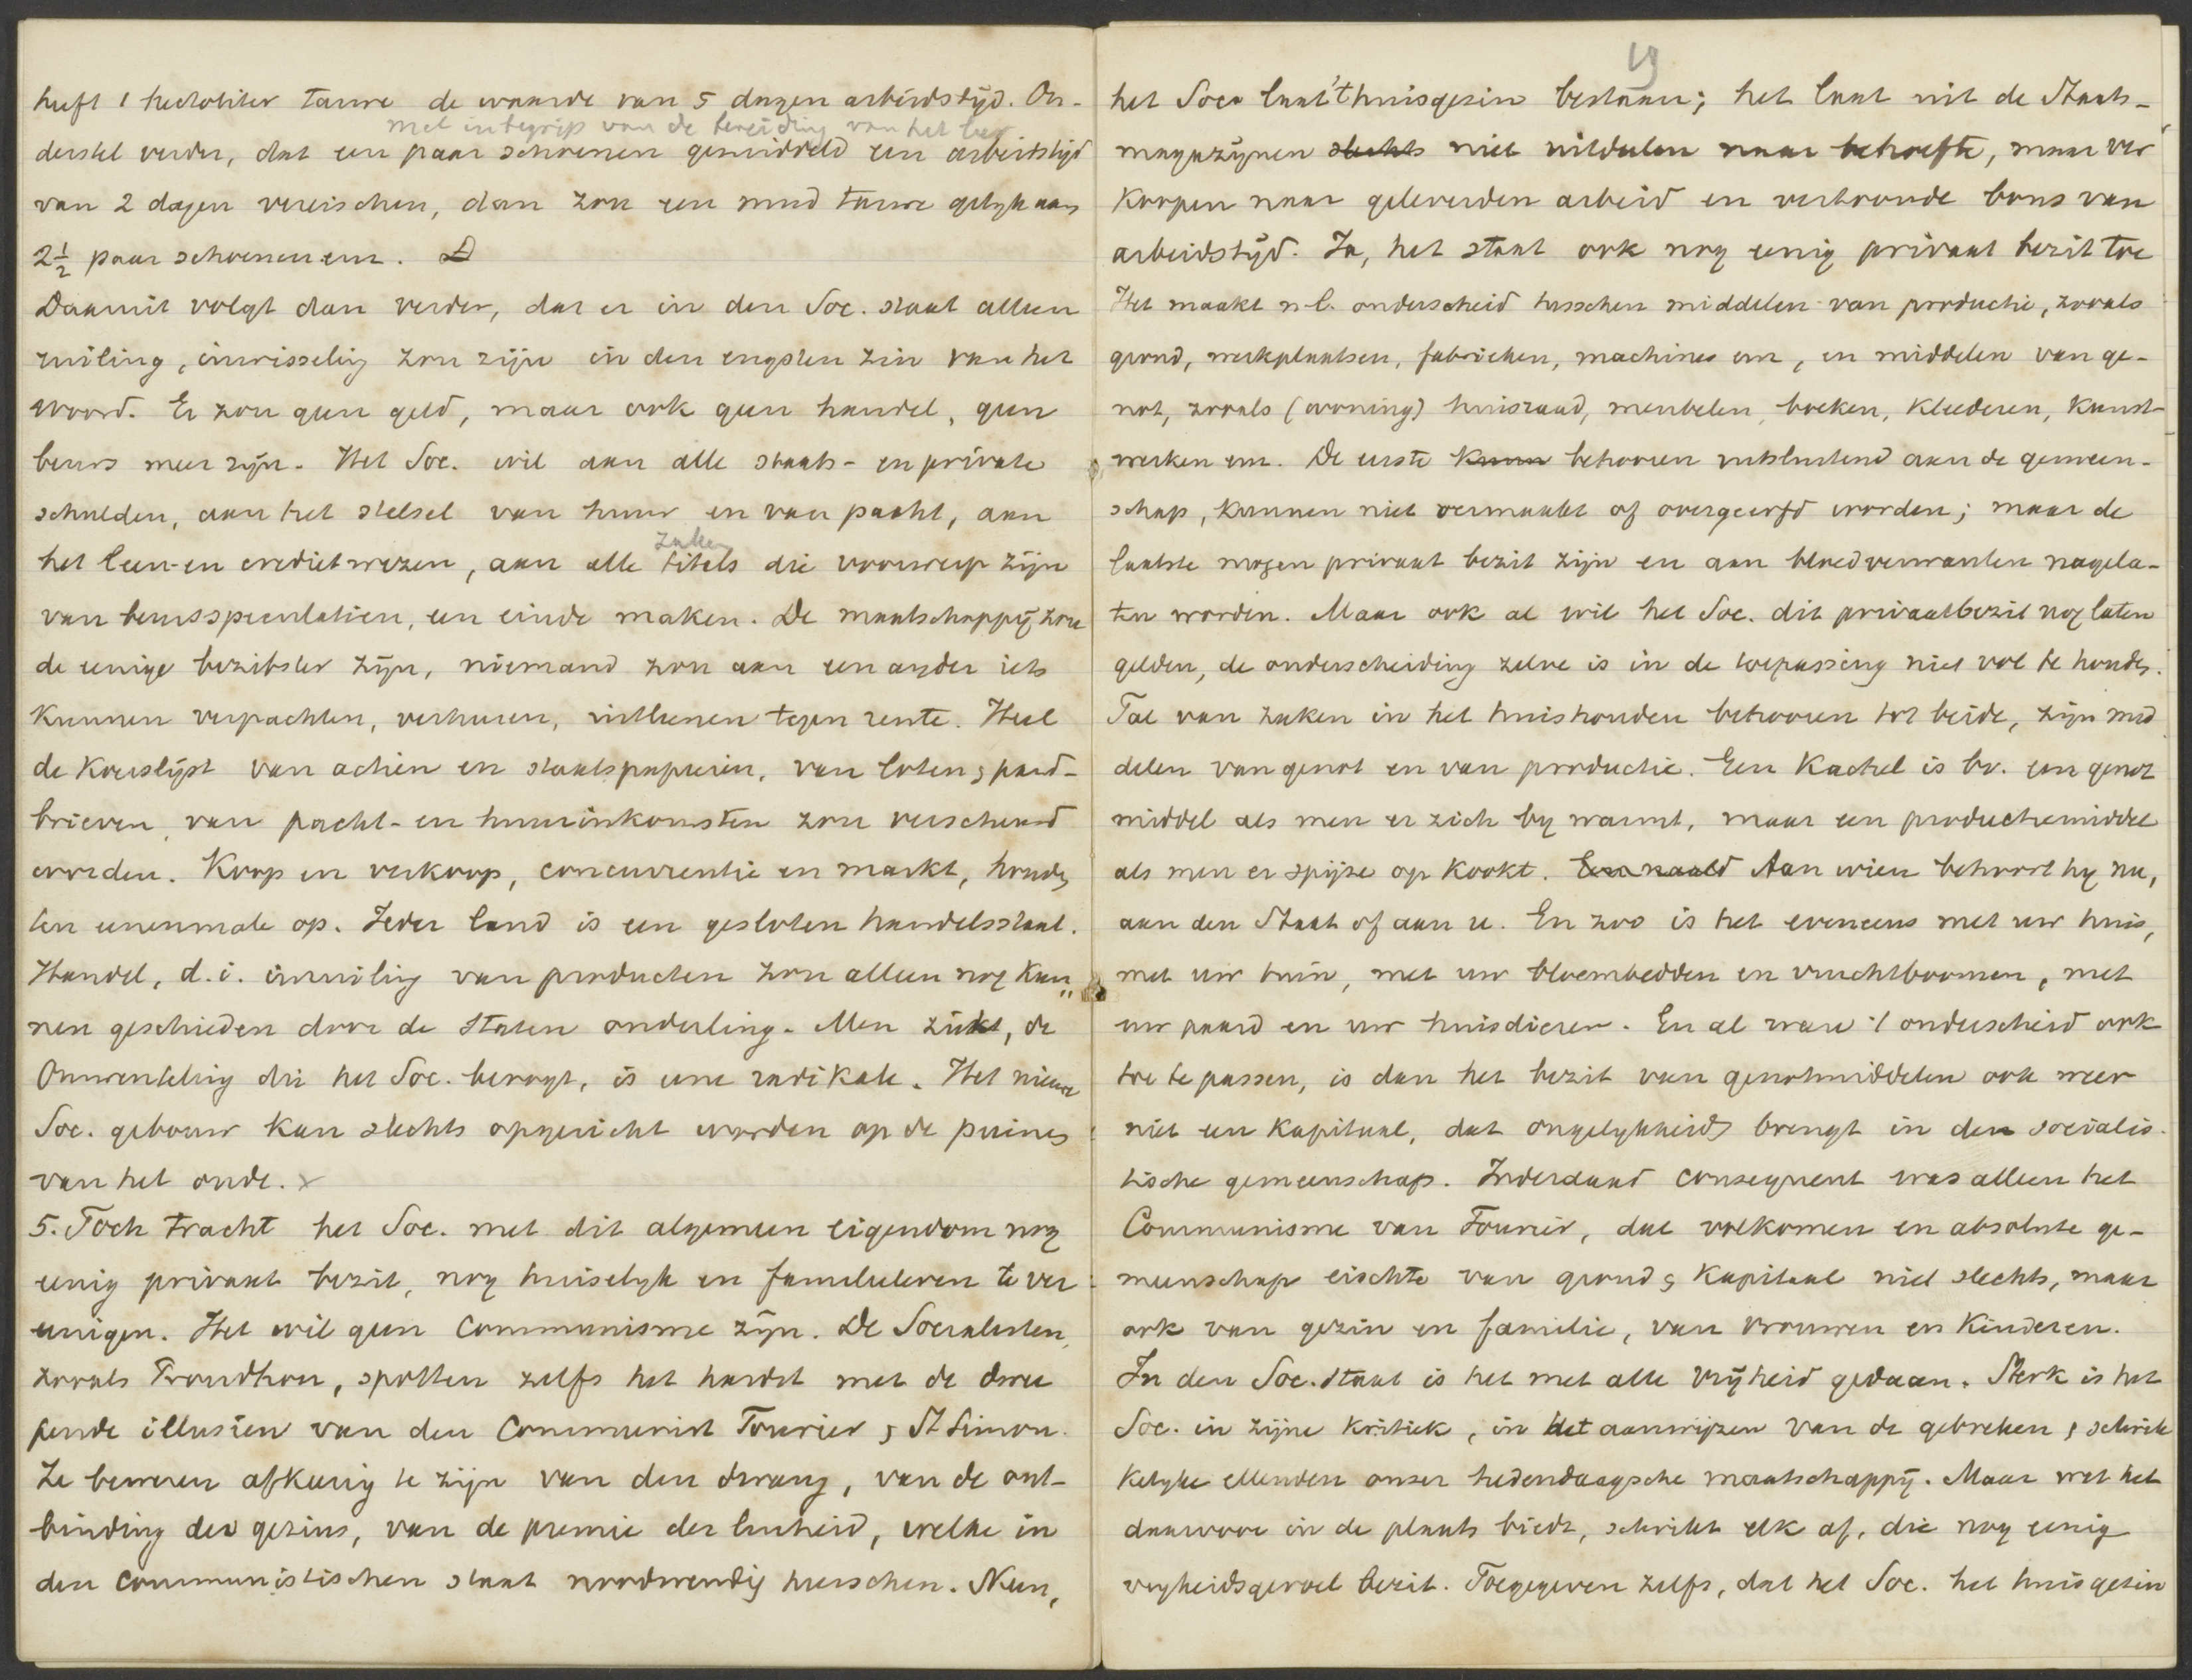 heeft 1 hectoliter tarwe de waarde van 5 dagen arbeidstijd. On-
met inbegrip van de bereiding van het leer
derstel verder, dat een paar schoenen gemiddeld een arbeidstijd
van 2 dagen vereischen, dan zou een mud tarwe gelyk aan
2½ paar schoenen enz. D
Daaruit volgt dan verder, dat er in den Soc. staat alleen
ruiling, inwisseling zou zijn in den engsten zin van het
woord. Er zou geen geld, maar ook geen handel, geen
beurs meer zijn. Het Soc. wil aan alle staats- en private
schulden, aan het stelsel van huur en van pacht, aan
zaken
het leen- en credietwezen, aan alle titels die voorwerp zijn
van beursspeculatien, een einde maken. De maatschappij zou
de eenige bezitster zijn, niemand zou aan een ander iets
kunnen verpachten, verhuren, uitleenen tegen rente. Heel
de koerslijst van actien en staatspapieren, van loten & pand-
brieven, van pacht- en huurinkomsten zou verscheurd
worden. Koop en verkoop, concurrentie en markt, houden
ten eenenmale op. Ieder land is een gesloten handelsstaat.
Handel, d.i. inruiling van producten zou alleen nog kun"
nen geschieden door de staten onderling. Men ziet, de
Omwenteling die het Soc. beoogt, is eene radikale. Het nieuwe
Soc. gebouw kan slechts opgericht worden op de puinen
van het oude. x
5. Toch tracht het Soc. met dit algemeen eigendom nog
eenig privaat bezit, nog huiselyk en familieleven te ver
eenigen. Het wil geen Communisme zijn. De Socialisten,
zooals Proudhon, spotten zelfs het hardst met de dwee
pende illusien van den Communist Fourier & St Simon.
Ze beweren afkeerig te zijn van den dwang, van de ont-
binding des gezins, van de premie der luiheid, welke in
den communistischen staat noodwendig heerschen. Neen,
19
het Soca laat 't huisgezin bestaan; het laat uit de Staats-
magazijnen slechts niet uitdeelen naar behoefte, maar ver
koopen naar geleverden arbeid en vertoonde bons van
arbeidstijd. Ja, het staat ook nog eenig privaat bezit toe
Het maakt n.l. onderscheid tusschen middelen van productie, zooals
grond, werkplaatsen, fabrieken, machines enz, en middelen van ge-
not, zooals (woning) huisraad, meubelen, boeken, kleederen, kunst-
werken enz. De eerste kunn behooren uitsluitend aan de gemeen-
schap, kunnen niet vermaakt of overgeerfd worden; maar de
laatste mogen privaat bezit zijn en aan bloedverwanten nagela-
ten worden. Maar ook al wil het Soc. dit privaatbezit nog laten
gelden, de onderscheiding zelve is in de toepassing niet vol te houden.
Tal van zaken in het huishouden behooren tot beide, zijn mid
delen van genot en van productie. Een kachel is bv. een genot
middel als men er zich by warmt, maar een productiemiddel
als men er spijze op kookt. Een naald Aan wien behoort hy nu,
aan den Staat of aan u. En zoo is het eveneens met uw huis,
met uw tuin, met uw bloembedden en vruchtboomen, met
uw paard en uw huisdieren. En al ware 't onderscheid ook
toe te passen, is dan het bezit van genotmiddelen ook weer
niet een kapitaal, dat ongelykheid brengt in den socialis-
tische gemeenschap. Inderdaad consequent was alleen het
Communisme van Fourier, dat volkomen en absolute ge-
meenschap eischte van grond & kapitaal niet slechts, maar
ook van gezin en familie, van vrouwen en kinderen.
In den Soc. staat is het met alle vrijheid gedaan. Sterk is het
Soc. in zijne kritiek, in het aanwijzen van de gebreken & schrik
kelyke ellenden onzer hedendaagsche maatschappij. Maar wat het
daarvoor in de plaats biedt, schrikt elk af, die nog eenig
vryheidsgevoel bezit. Toegegeven zelfs, dat het Soc. het huisgezin